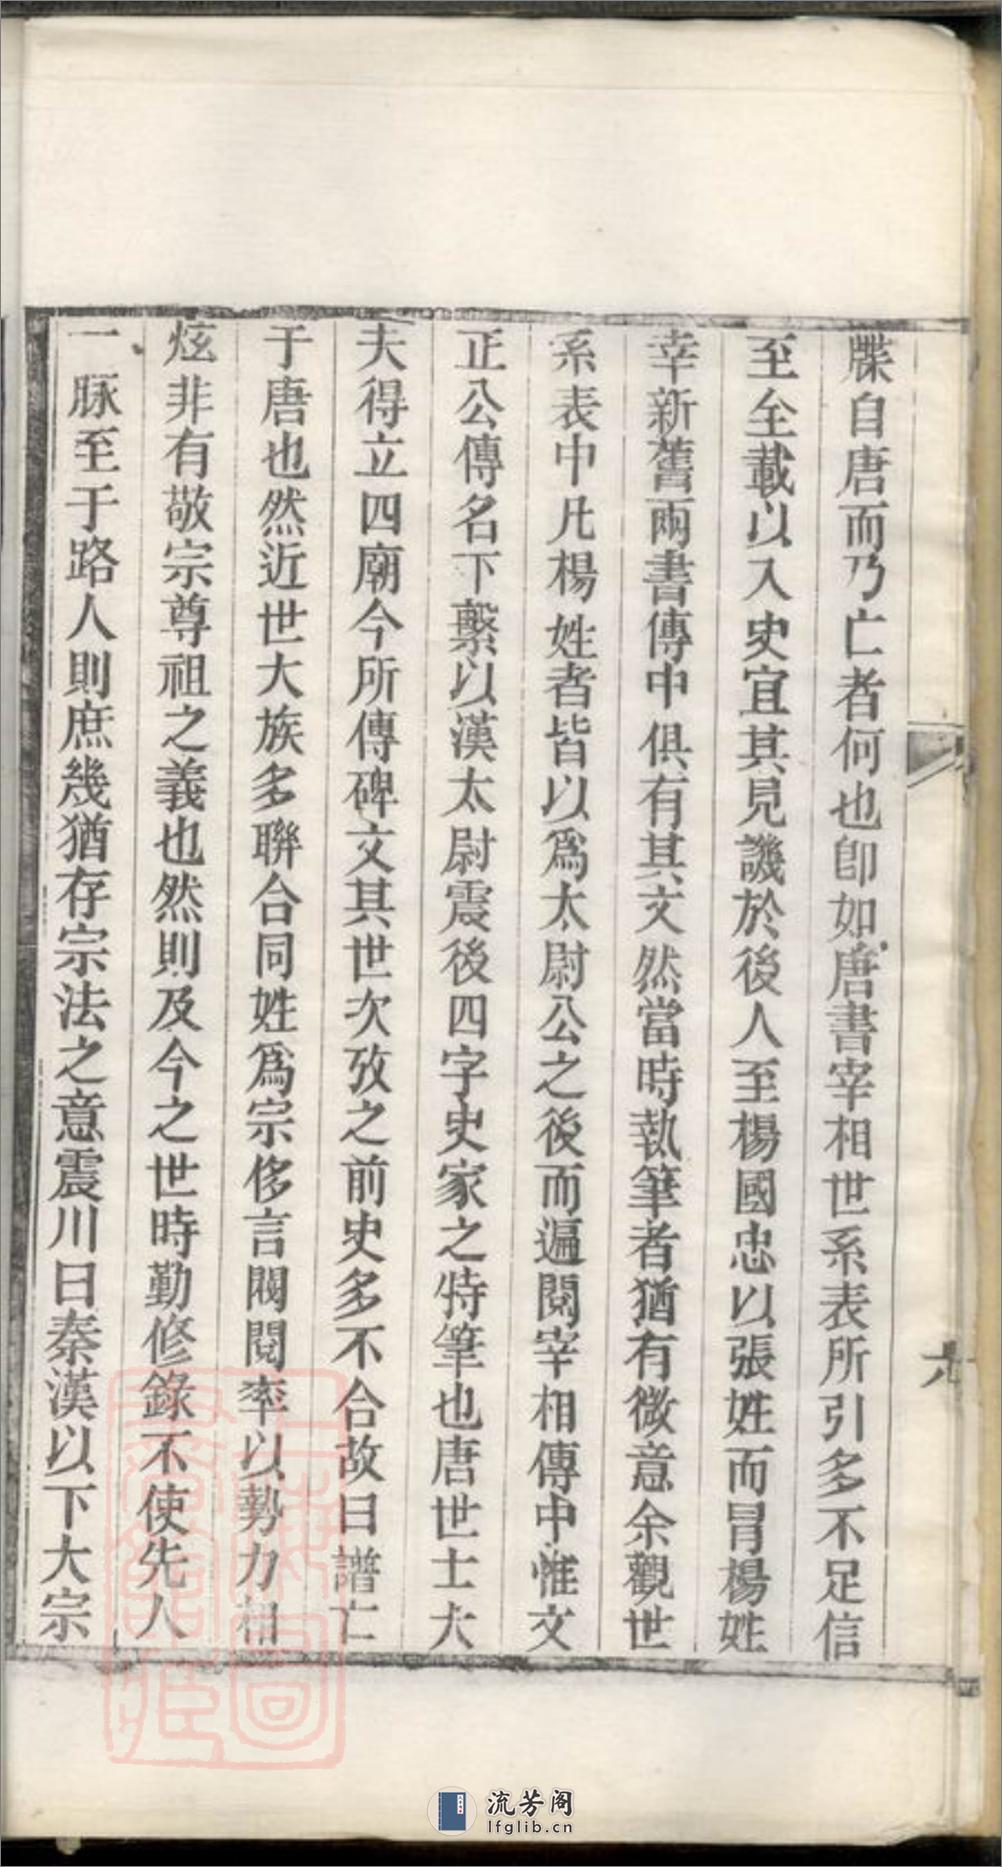 牒自唐而乃亡者何也卽如唐書宰相世系表所引多不足信
至全載以入史宜其見譏於後人至楊國忠以張姓而冒楊姓
幸新舊兩書傳中俱有其文然當時執筆者猶有微意余觀世
系表中凡楊姓者皆以爲太尉公之後而遍閱宰相傳中惟文
正公傳名下繫以漢太尉震後四字史家之特筆也唐世士大
夫得立四廟今所傳碑文其世次攷之前史多不合故曰譜亡
于唐也然近世大族多聯合同姓爲宗侈言閥閱率以勢力相
炫非有敬宗尊祖之義也然則及今之世時勤修錄不使先人
一脉至于路人則庶幾猶存宗法之意震川曰秦漢以下大宗
流芳阁
lfglib.cn